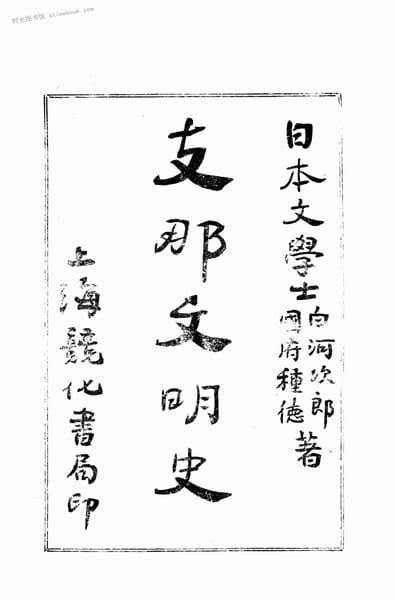 时光图书馆 atimebook.com
日本文學士白河次郎國府種德著
支那文明史
上海競化書局印